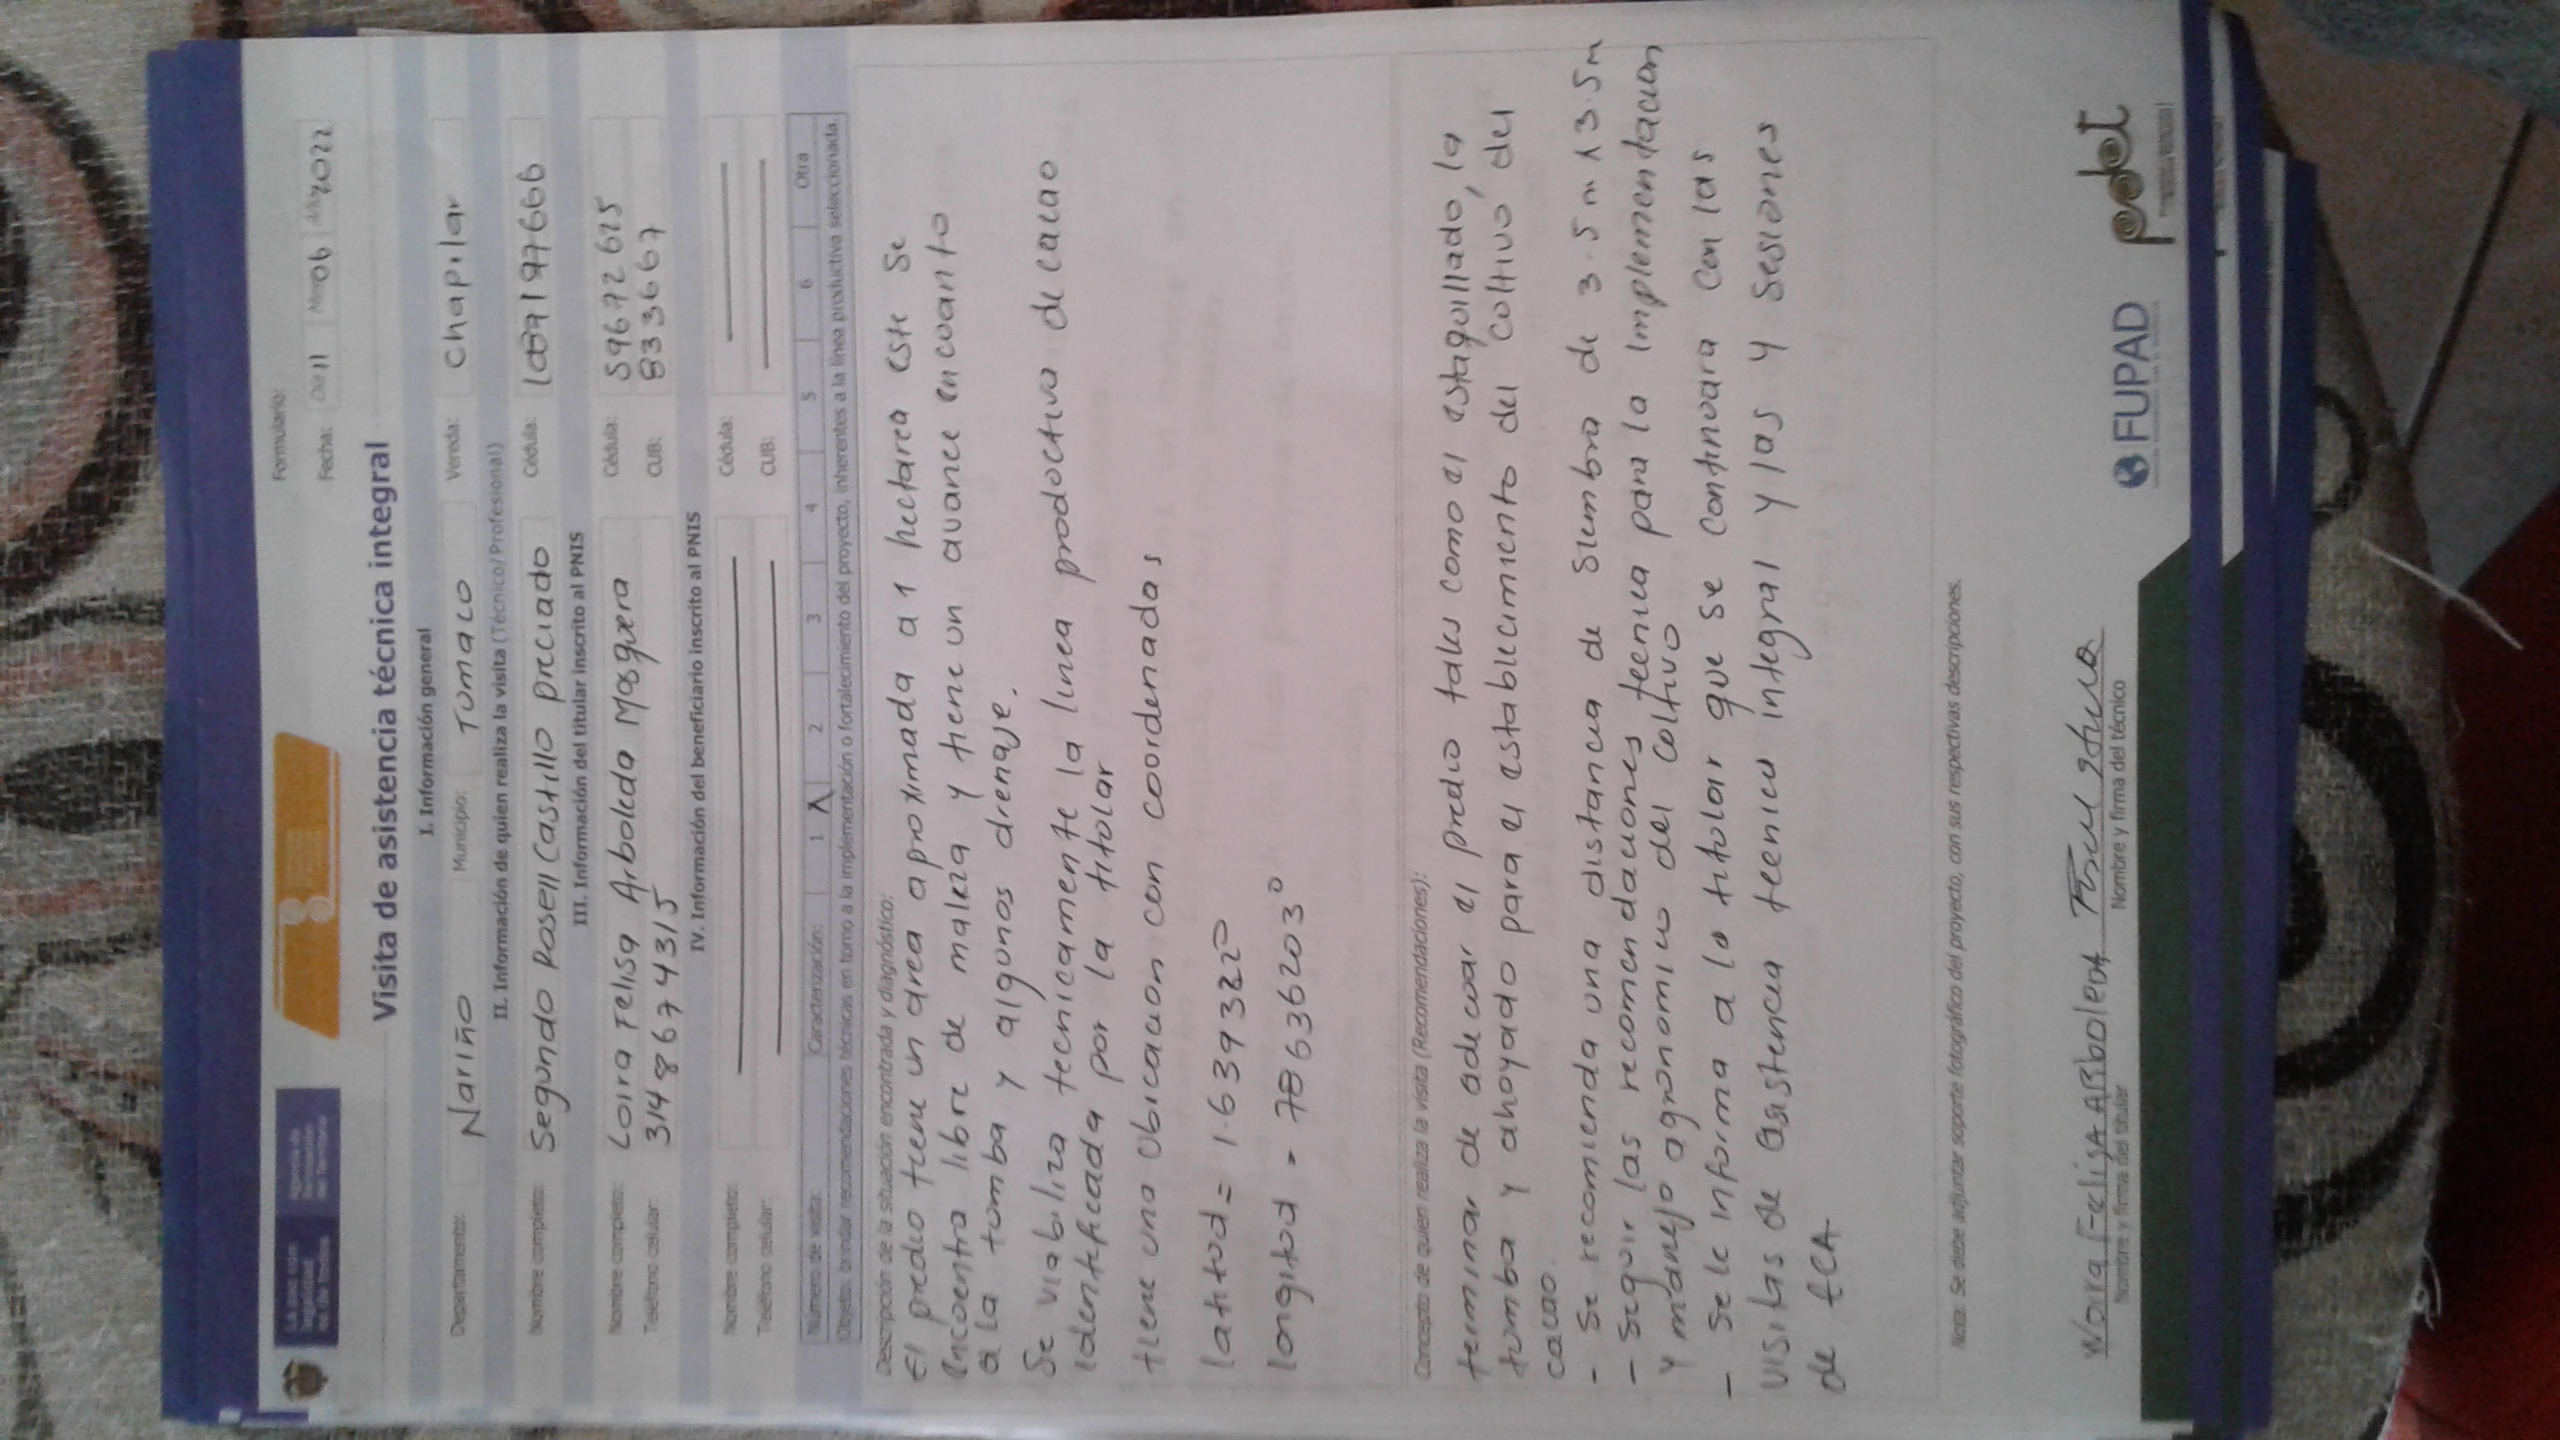 Formulario:
Fecha: Día 11 Mes 06 Año 2022
Visita de asistencia técnica integral
I. Información general
Departamento: Nariño Municipio: Tumaco Vereda: Chapilar
II. Información de quien realiza la visita (Técnico/Profesional)
Nombre completo: Segundo Rosell Castillo preciado Cédula: 1089197666
III. Información del titular inscrito al PNIS
Nombre completo: Loira Felisa Arboleda Mosquera Cédula: 59672625
Teléfono celular: 3148674315 CUB: 833667
IV. Información del beneficiario inscrito al PNIS
Nombre completo: Cédula:
Teléfono celular: CUB:
Número de visita: Caracterización: 1 X 2 3 4 5 6 Otra
Objeto: brindar recomendaciones técnicas en torno a la implementación o fortalecimiento del proyecto, inherentes a la línea productiva seleccionada.
Descripción de la situación encontrada y diagnóstico:
El predio tiene un area aproximada a 1 hectarea este se
encuentra libre de maleza y tiene un avance en cuanto
a la tumba y algunos drenaje.
Se viabiliza tecnicamente la linea productiva de cacao
identificada por la titular
tiene una Ubicacion con coordenadas
latitud = 1.639322°
longitud - 78636203°
Concepto de quien realiza la visita (Recomendaciones):
terminar de adecuar el predio tales como el estaquillado, la
tumba y ahoyado para el establecimiento del coltivo del
cacao.
- Se recomienda una distancia de siembra de 3.5m x 3.5m
- Seguir las recomendaciones tecnica para la implementacion
y manejo agronomico del coltivo
- Se le informa a la titular que se continuara con las
visitas de asistencia tecnica integral y las y sesiones
de ECA
Nota: Se debe adjuntar soporte fotográfico del proyecto, con sus respectivas descripciones.
Felisa Arboleda
Nombre y firma del titular Nombre y firma del técnico
FUPAD pdet